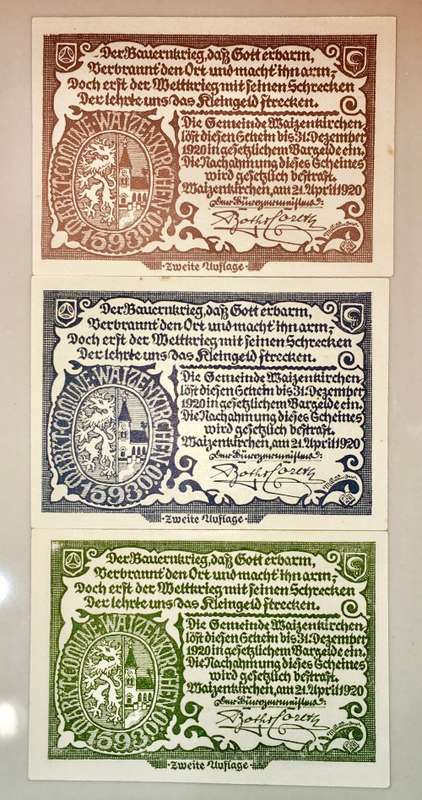 Der Bauernkrieg, daß Gott erbarm,
Verbrannt den Ort und macht ihn arm;
Doch erst der Weltkrieg mit seinen Schrecken
Der lehrte uns das Kleingeld strecken.
Die Gemeinde Waizenkirchen
löst diesen Schein bis 31. Dezember
1920 in gesetzlichem Bargelde ein.
Die Nachahmung dieses Scheines
wird gesetzlich bestraft.
Waizenkirchen, am 21. April 1920
Der Bürgermeister:
MARKT·COMUNE·WAIZENKIRCHEN
1593
Zweite Auflage
Der Bauernkrieg, daß Gott erbarm,
Verbrannt den Ort und macht ihn arm;
Doch erst der Weltkrieg mit seinen Schrecken
Der lehrte uns das Kleingeld strecken.
Die Gemeinde Waizenkirchen
löst diesen Schein bis 31. Dezember
1920 in gesetzlichem Bargelde ein.
Die Nachahmung dieses Scheines
wird gesetzlich bestraft.
Waizenkirchen, am 21. April 1920
Der Bürgermeister:
MARKT·COMUNE·WAIZENKIRCHEN
1593
Zweite Auflage
Der Bauernkrieg, daß Gott erbarm,
Verbrannt den Ort und macht ihn arm;
Doch erst der Weltkrieg mit seinen Schrecken
Der lehrte uns das Kleingeld strecken.
Die Gemeinde Waizenkirchen
löst diesen Schein bis 31. Dezember
1920 in gesetzlichem Bargelde ein.
Die Nachahmung dieses Scheines
wird gesetzlich bestraft.
Waizenkirchen, am 21. April 1920
Der Bürgermeister:
MARKT·COMUNE·WAIZENKIRCHEN
1593
Zweite Auflage